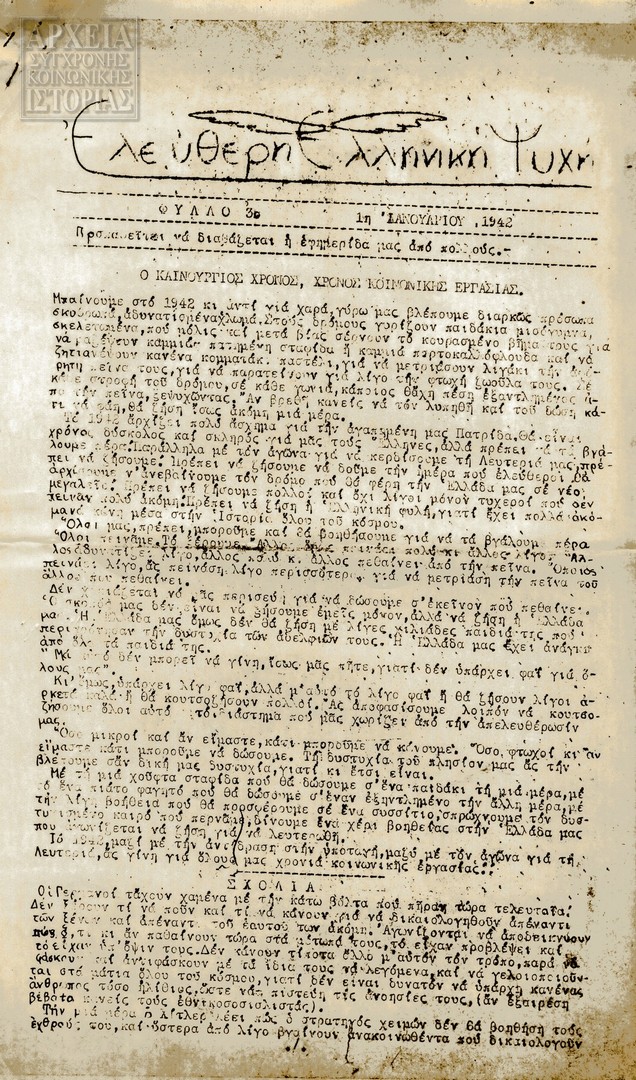 ΑΡΧΕΙΑ
ΣΥΓΧΡΟΝΗΣ
ΚΟΙΝΩΝΙΚΗΣ
ΙΣΤΟΡΙΑΣ
Ἐλεύθερη Ἑλληνική Ψυχή
ΦΥΛΛΟ 3ο 1η ἸΑΝΟΥΑΡΙΟΥ ,1942
Προσπαθεῖστε νά διαβάζεται ἡ ἐφημερίδα μας ἀπό πολλούς.-
Ο ΚΑΙΝΟΥΡΓΙΟΣ ΧΡΟΝΟΣ, ΧΡΟΝΟΣ ΚΟΙΝΩΝΙΚΗΣ ΕΡΓΑΣΙΑΣ.
Μπαίνουμε στό 1942 κι ἀντί γιά χαρά, γύρω μας βλέπουμε διαρκῶς πρόσωπα
σκυθρωπά, ἀδυνατισμένα, χλωμά. Στούς δρόμους γυρίζουν παιδάκια μισόγυμνα,
σκελετωμένα, πού μόλις καί μετά βίας σέρνουν τό κουρασμένο βῆμα τους γιά
νά μαζέψουν καμμιά πατημένη σταφίδα ἤ καμμιά πορτοκαλόφλουδα καί νά
ζητιανέψουν κανένα κομματάκι παστέλι, γιά νά μετριάσουν λιγάκι τήν
πεῖνα τους, γιά νά παρατείνουν γιά λίγο τήν φτωχή ζωούλα τους. Σέ
κάθε στροφή τοῦ δρόμου, σέ κάθε γωνιά, κάποιος θἄλη πέση ἐξαντλημένος ἀ-
πό τήν πεῖνα, ξεψυχῶντας. Ἄν βρεθῆ κανείς νά τόν λυπηθῆ καί τοῦ δώση κά-
τι νά φάη, θά ζήση ἴσως ἀκόμη μιά μέρα.
Τό 1942 ἀρχίζει πολύ ἄσχημα γιά τήν ἀγαπημένη μας Πατρίδα. Θά εἶναι
χρόνος δύσκολος καί σκληρός γιά μᾶς τούς Ἕλληνες, ἀλλά πρέπει νά τά βγά-
λουμε πέρα. Παράλληλα μέ τόν ἀγῶνα γιά νά κερδίσουμε τή Λευτεριά μας, πρέ-
πει νά ζήσουμε. Πρέπει νά ζήσουμε νά δοῦμε τήν ἡμέρα πού ἐλεύθεροι θά
ἀρχίσουμε ν'ἀνεβαίνουμε τόν δρόμο πού θά φέρη τήν Ἑλλάδα μας σέ νέο
μεγαλεῖο. Πρέπει νά ζήσουμε πολλοί καί ὄχι λίγοι μόνον τυχεροί πού δέν
πείναν πολύ ἀκόμη. Πρέπει νά ζήση ἡ Ἑλληνική φυλή, γιατί ἔχει πολλά ἀκό-
μα νά κάνη μέσα στήν Ἱστορία ὅλου τοῦ κόσμου.
Ὅλοι μας, πρέπει, μποροῦμε καί θά βοηθήσουμε γιά νά τά βγάλουμε πέρα
Ὅλοι πεινᾶμε. Τό ξέρουμε. Ἄλλος ὅμως πεινάει πολύ κι ἄλλος λίγο. Ἄλ-
λος ἀδυνατίζει λίγο, ἄλλος πολύ κι ἄλλος πεθαίνει ἀπό τήν πεῖνα. Ὅποιος
πεινάει λίγο, ἄς πεινάση λίγο περισσότερο γιά νά μετριάση τήν πεῖνα τοῦ
ἄλλου πού πεθαίνει.
Δέν χρειάζεται νά μᾶς περισεύη γιά νά δώσουμε σ'ἐκεῖνον πού πεθαίνει.
Ὁ σκοπός μας δέν εἶναι νά ζήσουμε ἐμεῖς μόνον, ἀλλά νά ζήση ἡ Ἑλλάδα
μας. Ἡ Ἑλλάδα μας ὅμως δέν θά ζήση μέ λίγες χιλιάδες παιδιά της πού
τήν δυστυχία τῶν ἀδελφιῶν τους. Ἡ Ἑλλάδα μας ἔχει ἀνάγκη
ἀπό ὅλα τά παιδιά της.
Μά αὐτό δέν μπορεῖ νά γίνη, ἴσως μᾶς πῆτε, γιατί δέν ὑπάρχει φαΐ γιά ὅ-
λους μας.
Κι'ὅμως, ὑπάρχει λίγο φαΐ, ἀλλά μ'αὐτό τό λίγο φαΐ ἤ θά ζήσουν λίγοι ἀ-
ρκετά καλά ἤ θά κουτσοζήσουν πολλοί. Ἄς ἀποφασίσουμε λοιπόν νά κουτσο-
ζήσουμε ὅλοι αὐτό τό διάστημα πού μᾶς χωρίζει ἀπό τήν ἀπελευθέρωσίν
μας.
Ὅσο μικροί καί ἄν εἴμαστε, κάτι μποροῦμε νά κάνουμε. Ὅσο φτωχοί κι ἄν
εἴμαστε κάτι μποροῦμε νά δώσουμε. Τή δυστυχία τοῦ πλησίον μας ἄς τήν
βλέπουμε σάν δική μας δυστυχία, γιατί κι ἔτσι εἶναι.
Μέ τή μιά χούφτα σταφίδα πού θά δώσουμε σ'ἕνα παιδάκι τή μιά μέρα, μέ
τό ἕνα πιάτο φαγητό πού θά δώσουμε σ'ἕναν ἐξηντλημένο τήν ἄλλη μέρα, μέ
τήν λίγη βοήθεια πού θά προσφέρουμε σέ ἕνα συσσίτιο, σπρώχνουμε τόν δυσ-
τυχισμένο καιρό πού περνᾶμε, δίνουμε ἕνα χέρι βοηθείας στήν Ἑλλάδα μας
πού ἀγωνίζεται νά ζήση, γιά νά λευτερωθῆ.
Τό 1942, μαζί μέ τήν ἀντίδραση στήν ὑποταγή, μαζύ μέ τόν ἀγῶνα γιά τή
Λευτεριά, ἄς γίνη γιά ὅλους μας χρονιά κοινωνικῆς ἐργασίας..
ΣΧΟΛΙΑ
Οἱ Γερμανοί τἄχουν χαμένα μέ τήν κάτω βόλτα πού πῆραν τώρα τελευταῖα.
Δέν ξέρουν τί νά ποῦν καί τί νά κάνουν γιά νά δικαιολογηθοῦν ἀπέναντι
τῶν ξένων καί ἀπέναντι τοῦ ἑαυτοῦ των ἀκόμη. Ἀγωνίζονται νά ἀποδείκνύουν
πώς ὅ,τι κι ἄν παθαίνουν τώρα στά μέτωπά τους, τό εἶχαν προβλέψει καί
τό εἶχαν ὑπ'ὄψιν τους. Δέν κάνουν τίποτα ἄλλο μ'αὐτόν τόν τρόπο, παρά νά
φάσκουν καί ἀντιφάσκουν μέ τά ἴδια τους τά λεγόμενα, καί νά γελοιοποιοῦν-
ται στά μάτια ὅλου τοῦ κόσμου, γιατί δέν εἶναι δυνατόν νά ὑπάρχη κανένας
ἄνθρωπος τόσο ἠλίθιος, ὥστε νά πιστεύη τίς ἀνοησίες τους, (ἄν ἐξαιρέση
βέβαια κανείς τούς ἐθνικοσοσιαλιστάς).
Τήν μιά μέρα ὁ Χίτλερ λέει πώς ὁ στρατηγός χειμών δέν θά βοηθήση τούς
ἐχθρούς του, καί ὕστερα ἀπό λίγο βγαίνουν ἀνακοινωθέντα πού δικαιολογοῦν
./.